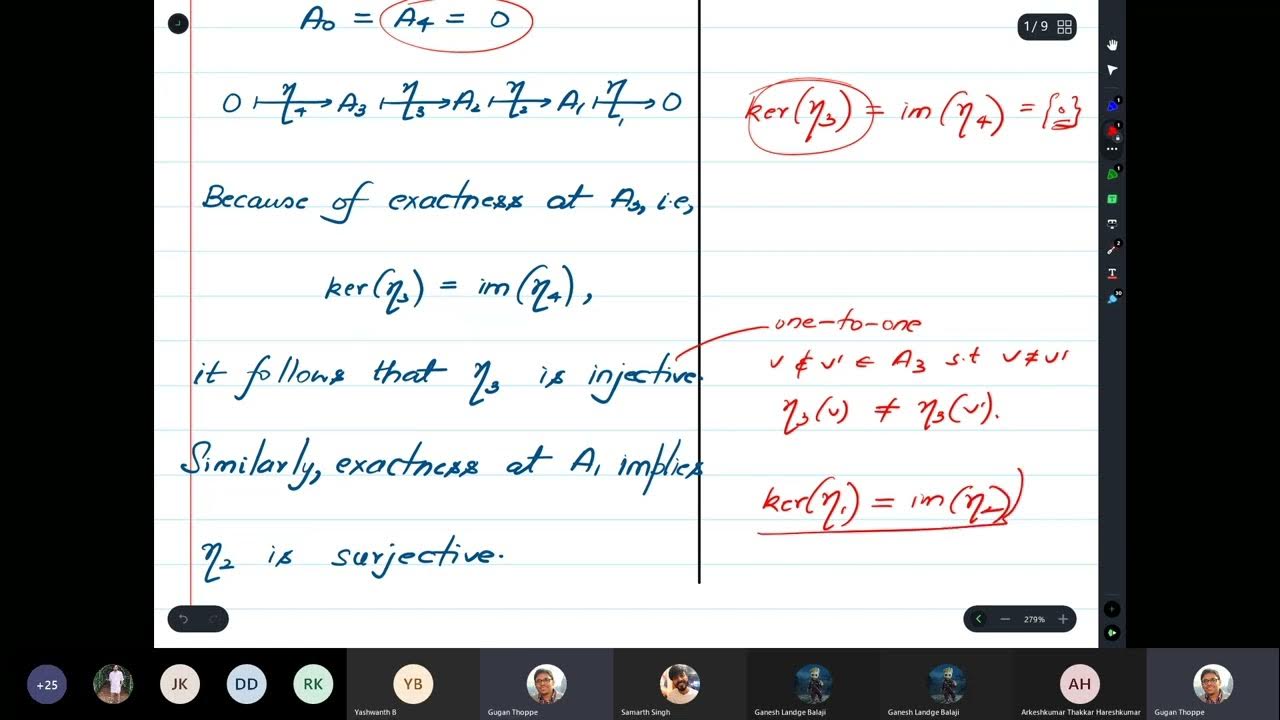 A₀ = A₄ = 0
0 ⟼ η₄ A₃ ⟼ η₃ A₂ ⟼ η₂ A₁ ⟼ η₁ 0
Because of exactness at A₃, i.e,
ker(η₃) = im(η₄),
it follows that η₃ is injective.
Similarly, exactness at A₁ implies
η₂ is surjective.
1/9
ker(η₃) = im(η₄) = {0}
one-to-one
v & v' ∈ A₃ s.t v ≠ v'
η₃(v) ≠ η₃(v').
ker(η₁) = im(η₂)
279%
+25
JK
DD
RK
YB
Yashwanth B
Gugan Thoppe
Samarth Singh
Ganesh Landge Balaji
Ganesh Landge Balaji
AH
Arkeshkumar Thakkar Hareshkumar
Gugan Thoppe